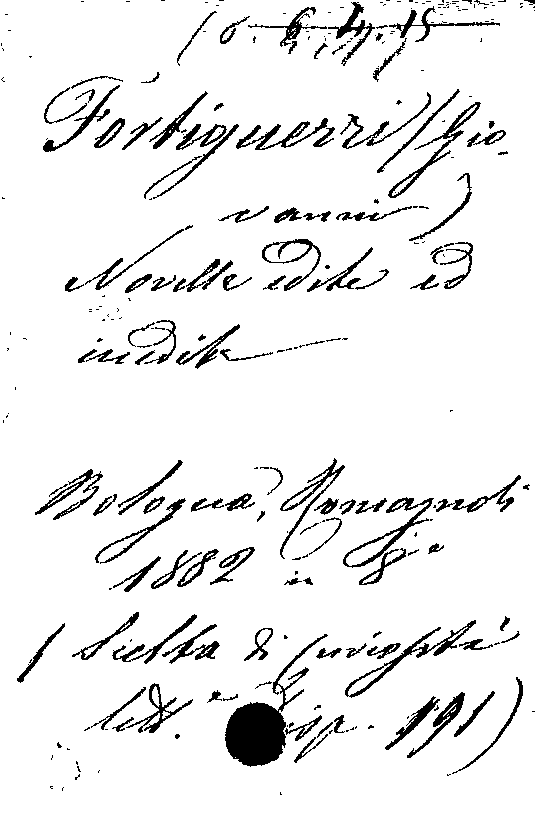 16. 6. 4. 15
Fortiguerri (Gio-
vanni)
Novelle edite ed
inedite
Bologna, Romagnoli
1882 in 8°
(Scelta di curiosità
lett.e Disp. 191)